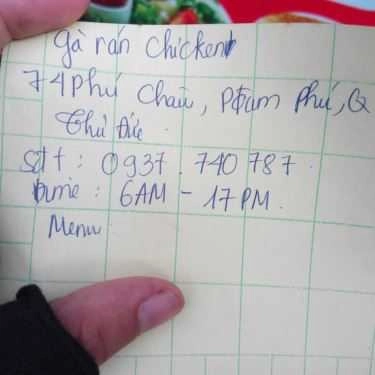 gà rán chicken
74 Phú Châu, P Tam Phú, Q
Thủ Đức.
sđt : 0937.740 787.
time : 6AM - 17 PM.
Menu